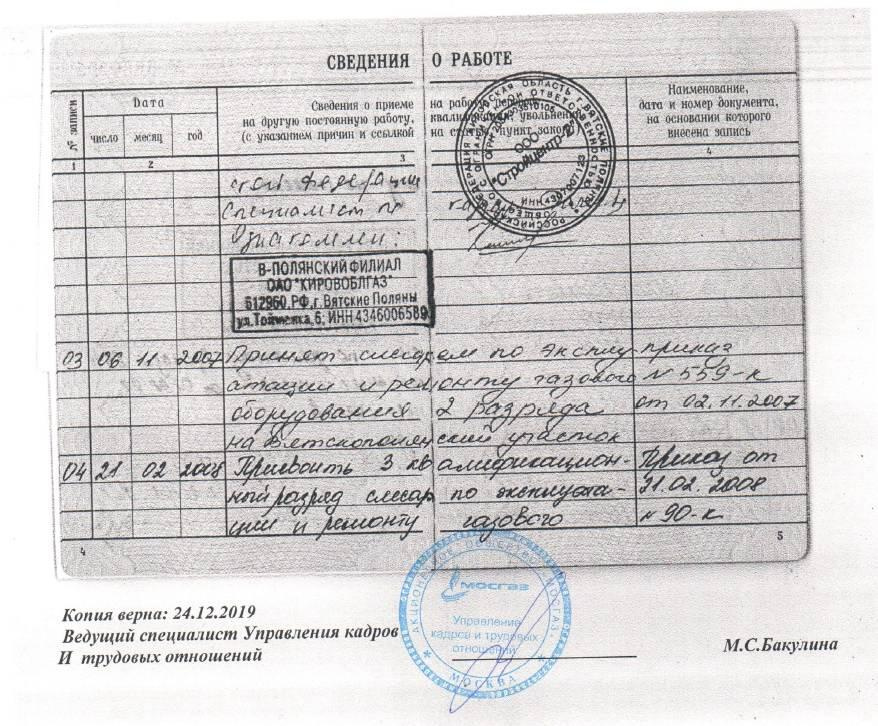 СВЕДЕНИЯ О РАБОТЕ
№ записи
Дата
число месяц год
Сведения о приеме на работу,
на другую постоянную работу, квалификации, увольнении
(с указанием причин и ссылкой на статью, пункт закона)
Наименование,
дата и номер документа,
на основании которого
внесена запись
1 2 3 4
Федерации
Специалист по
Ознакомлен:
РОССИЙСКАЯ ФЕДЕРАЦИЯ КИРОВСКАЯ ОБЛАСТЬ г. ВЯТСКИЕ ПОЛЯНЫ
ООО
"Стройцентр-
В-ПОЛЯНСКИЙ ФИЛИАЛ
ОАО "КИРОВОБЛГАЗ"
612960,РФ,г.Вятские Поляны
ул.Тойменка,6, ИНН 4346006589
03 06 11 2007 Принят слесарем по эксплу- приказ
атации и ремонту газового №559-к
оборудования 2 разряда от 02.11.2007
на Вятскополянский участок
04 21 02 2008 Присвоить 3 квалификацион- Приказ от
ный разряд слесаря по эксплуата- 21.02.2008
ции и ремонту газового №90-к
4 5
АКЦИОНЕРНОЕ ОБЩЕСТВО "МОСГАЗ"
МОСГАЗ
Управление
кадров и трудовых
отношений
* МОСКВА *
Копия верна: 24.12.2019
Ведущий специалист Управления кадров
И трудовых отношений
М.С.Бакулина